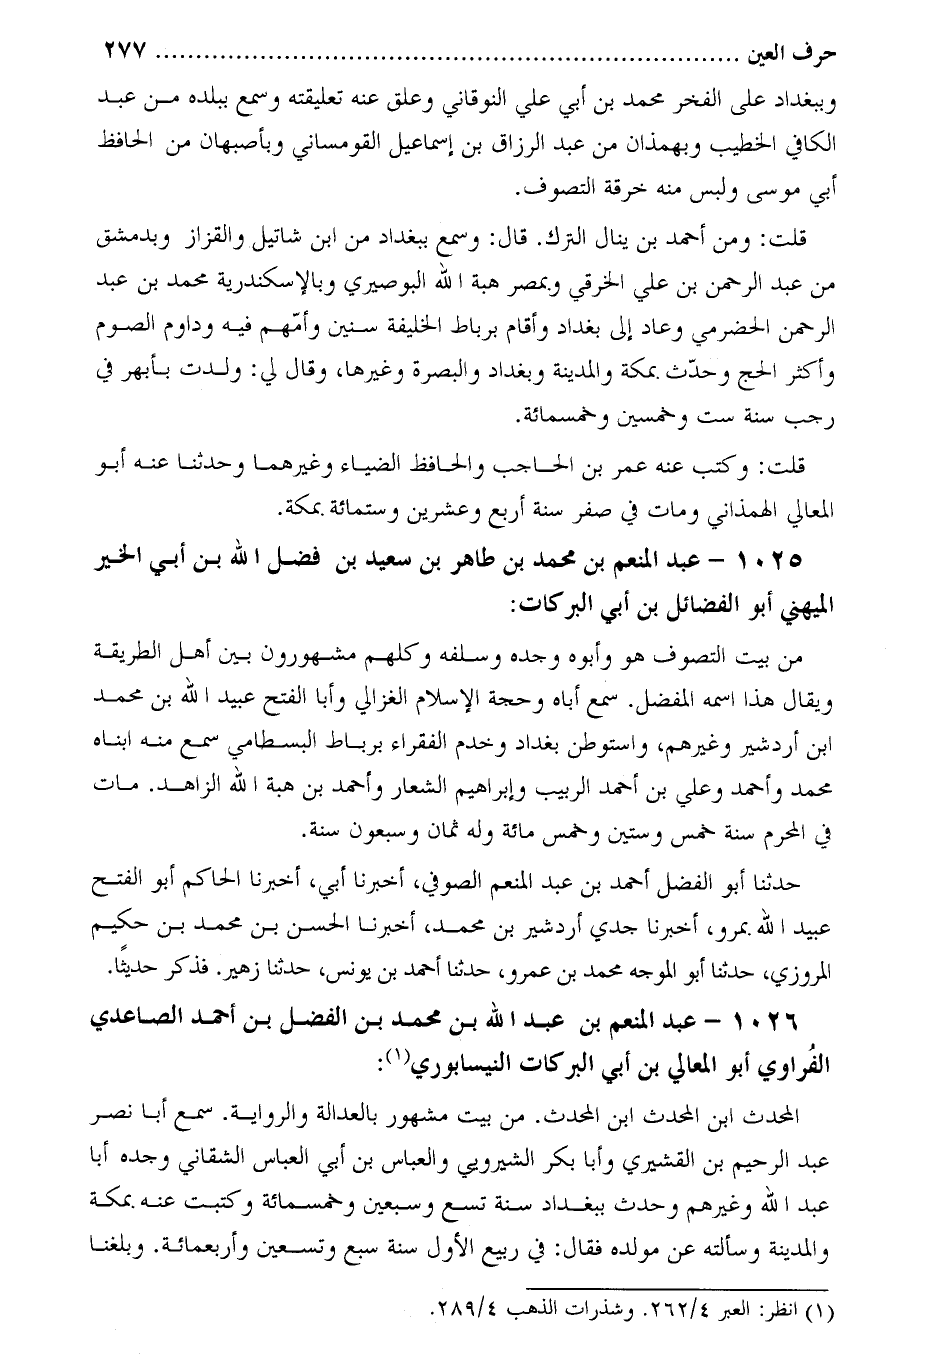 حرف العين ........................................................................ ٢٧٧
وببغداد على الفخر محمد بن أبي علي النوقاني وعلق عنه تعليقته وسمع ببلده من عبد
الكافي الخطيب وبهمذان من عبد الرزاق بن إسماعيل القومساني وبأصبهان من الحافظ
أبي موسى ولبس منه خرقة التصوف.
قلت: ومن أحمد بن ينال الترك. قال: وسمع ببغداد من ابن شاتيل والقزاز وبدمشق
من عبد الرحمن بن علي الخرقي وبمصر هبة الله البوصيري وبالإسكندرية محمد بن عبد
الرحمن الحضرمي وعاد إلى بغداد وأقام برباط الخليفة سنين وأمّهم فيه وداوم الصوم
وأكثر الحج وحدّث بمكة والمدينة وبغداد والبصرة وغيرها، وقال لي: ولدت بأبهر في
رجب سنة ست وخمسين وخمسمائة.
قلت: وكتب عنه عمر بن الحاجب والحافظ الضياء وغيرهما وحدثنا عنه أبو
المعالي الهمذاني ومات في صفر سنة أربع وعشرين وستمائة بمكة.
١٠٢٥ – عبد المنعم بن محمد بن طاهر بن سعيد بن فضل الله بن أبي الخير
الميهني أبو الفضائل بن أبي البركات:
من بيت التصوف هو وأبوه وجده وسلفه وكلهم مشهورون بين أهل الطريقة
ويقال هذا اسمه المفضل. سمع أباه وحجة الإسلام الغزالي وأبا الفتح عبيد الله بن محمد
ابن أردشير وغيرهم، واستوطن بغداد وخدم الفقراء برباط البسطامي سمع منه ابناه
محمد وأحمد وعلي بن أحمد الربيب وإبراهيم الشعار وأحمد بن هبة الله الزاهد. مات
في المحرم سنة خمس وستين وخمس مائة وله ثمان وسبعون سنة.
حدثنا أبو الفضل أحمد بن عبد المنعم الصوفي، أخبرنا أبي، أخبرنا الحاكم أبو الفتح
عبيد الله بمرو، أخبرنا جدي أردشير بن محمد، أخبرنا الحسن بن محمد بن حكيم
المروزي، حدثنا أبو الموجه محمد بن عمرو، حدثنا أحمد بن يونس، حدثنا زهير. فذكر حديثًا.
١٠٢٦ – عبد المنعم بن عبد الله بن محمد بن الفضل بن أحمد الصاعدي
الفُراوي أبو المعالي بن أبي البركات النيسابوري(١):
المحدث ابن المحدث ابن المحدث. من بيت مشهور بالعدالة والرواية. سمع أبا نصر
عبد الرحيم بن القشيري وأبا بكر الشيرويي والعباس بن أبي العباس الشقاني وجده أبا
عبد الله وغيرهم وحدث ببغداد سنة تسع وسبعين وخمسمائة وكتبت عنه بمكة
والمدينة وسألته عن مولده فقال: في ربيع الأول سنة سبع وتسعين وأربعمائة. وبلغنا
(١) انظر: العبر ٢٦٢/٤. وشذرات الذهب ٢٨٩/٤.